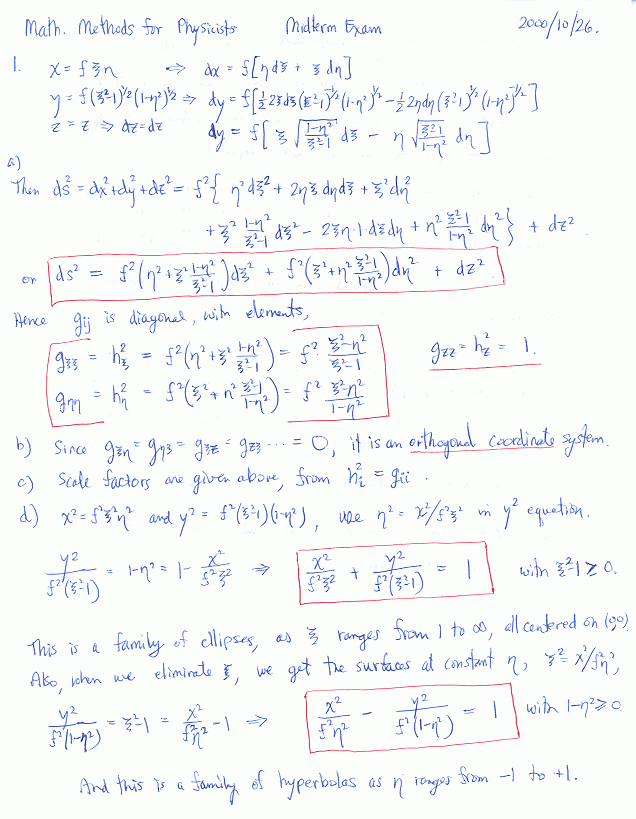 Math. Methods for Physicists Midterm Exam 2000/10/26.
1. x = fξη ⇒ dx = f[ηdξ + ξdη]
y = f(ξ²-1)^½(1-η²)^½ ⇒ dy = f[½2ξdξ(ξ²-1)^-½(1-η²)^½ - ½2ηdη(ξ²-1)^½(1-η²)^-½]
z = z ⇒ dz = dz dy = f[ξ√((1-η²)/(ξ²-1)) dξ - η√((ξ²-1)/(1-η²)) dη]
a)
Then ds² = dx²+dy²+dz² = f²{ η²dξ² + 2ηξ dηdξ + ξ²dη²
+ ξ² (1-η²)/(ξ²-1) dξ² - 2ξη·1·dξdη + η² (ξ²-1)/(1-η²) dη² } + dz²
or ds² = f²(η²+ξ² (1-η²)/(ξ²-1))dξ² + f²(ξ²+η² (ξ²-1)/(1-η²))dη² + dz²
Hence gij is diagonal, with elements,
gξξ = hξ² = f²(η²+ξ² (1-η²)/(ξ²-1)) = f² (ξ²-η²)/(ξ²-1) gzz = hz² = 1.
gηη = hη² = f²(ξ²+η² (ξ²-1)/(1-η²)) = f² (ξ²-η²)/(1-η²)
b) Since gξη = gηξ = gξz = gzξ ... = 0, it is an orthogonal coordinate system.
c) Scale factors are given above, from hi² = gii.
d) x² = f²ξ²η² and y² = f²(ξ²-1)(1-η²), use η² = x²/f²ξ² in y² equation.
y²/(f²(ξ²-1)) = 1-η² = 1- x²/(f²ξ²) ⇒ x²/(f²ξ²) + y²/(f²(ξ²-1)) = 1 with ξ²-1 ≥ 0.
This is a family of ellipses, as ξ ranges from 1 to ∞, all centered on (0,0)
Also, when we eliminate ξ, we get the surfaces at constant η, ξ² = x²/f²η²,
y²/(f²(1-η²)) = ξ²-1 = x²/(f²η²) -1 ⇒ x²/(f²η²) - y²/(f²(1-η²)) = 1 with 1-η² ≥ 0
And this is a family of hyperbolas as η ranges from -1 to +1.